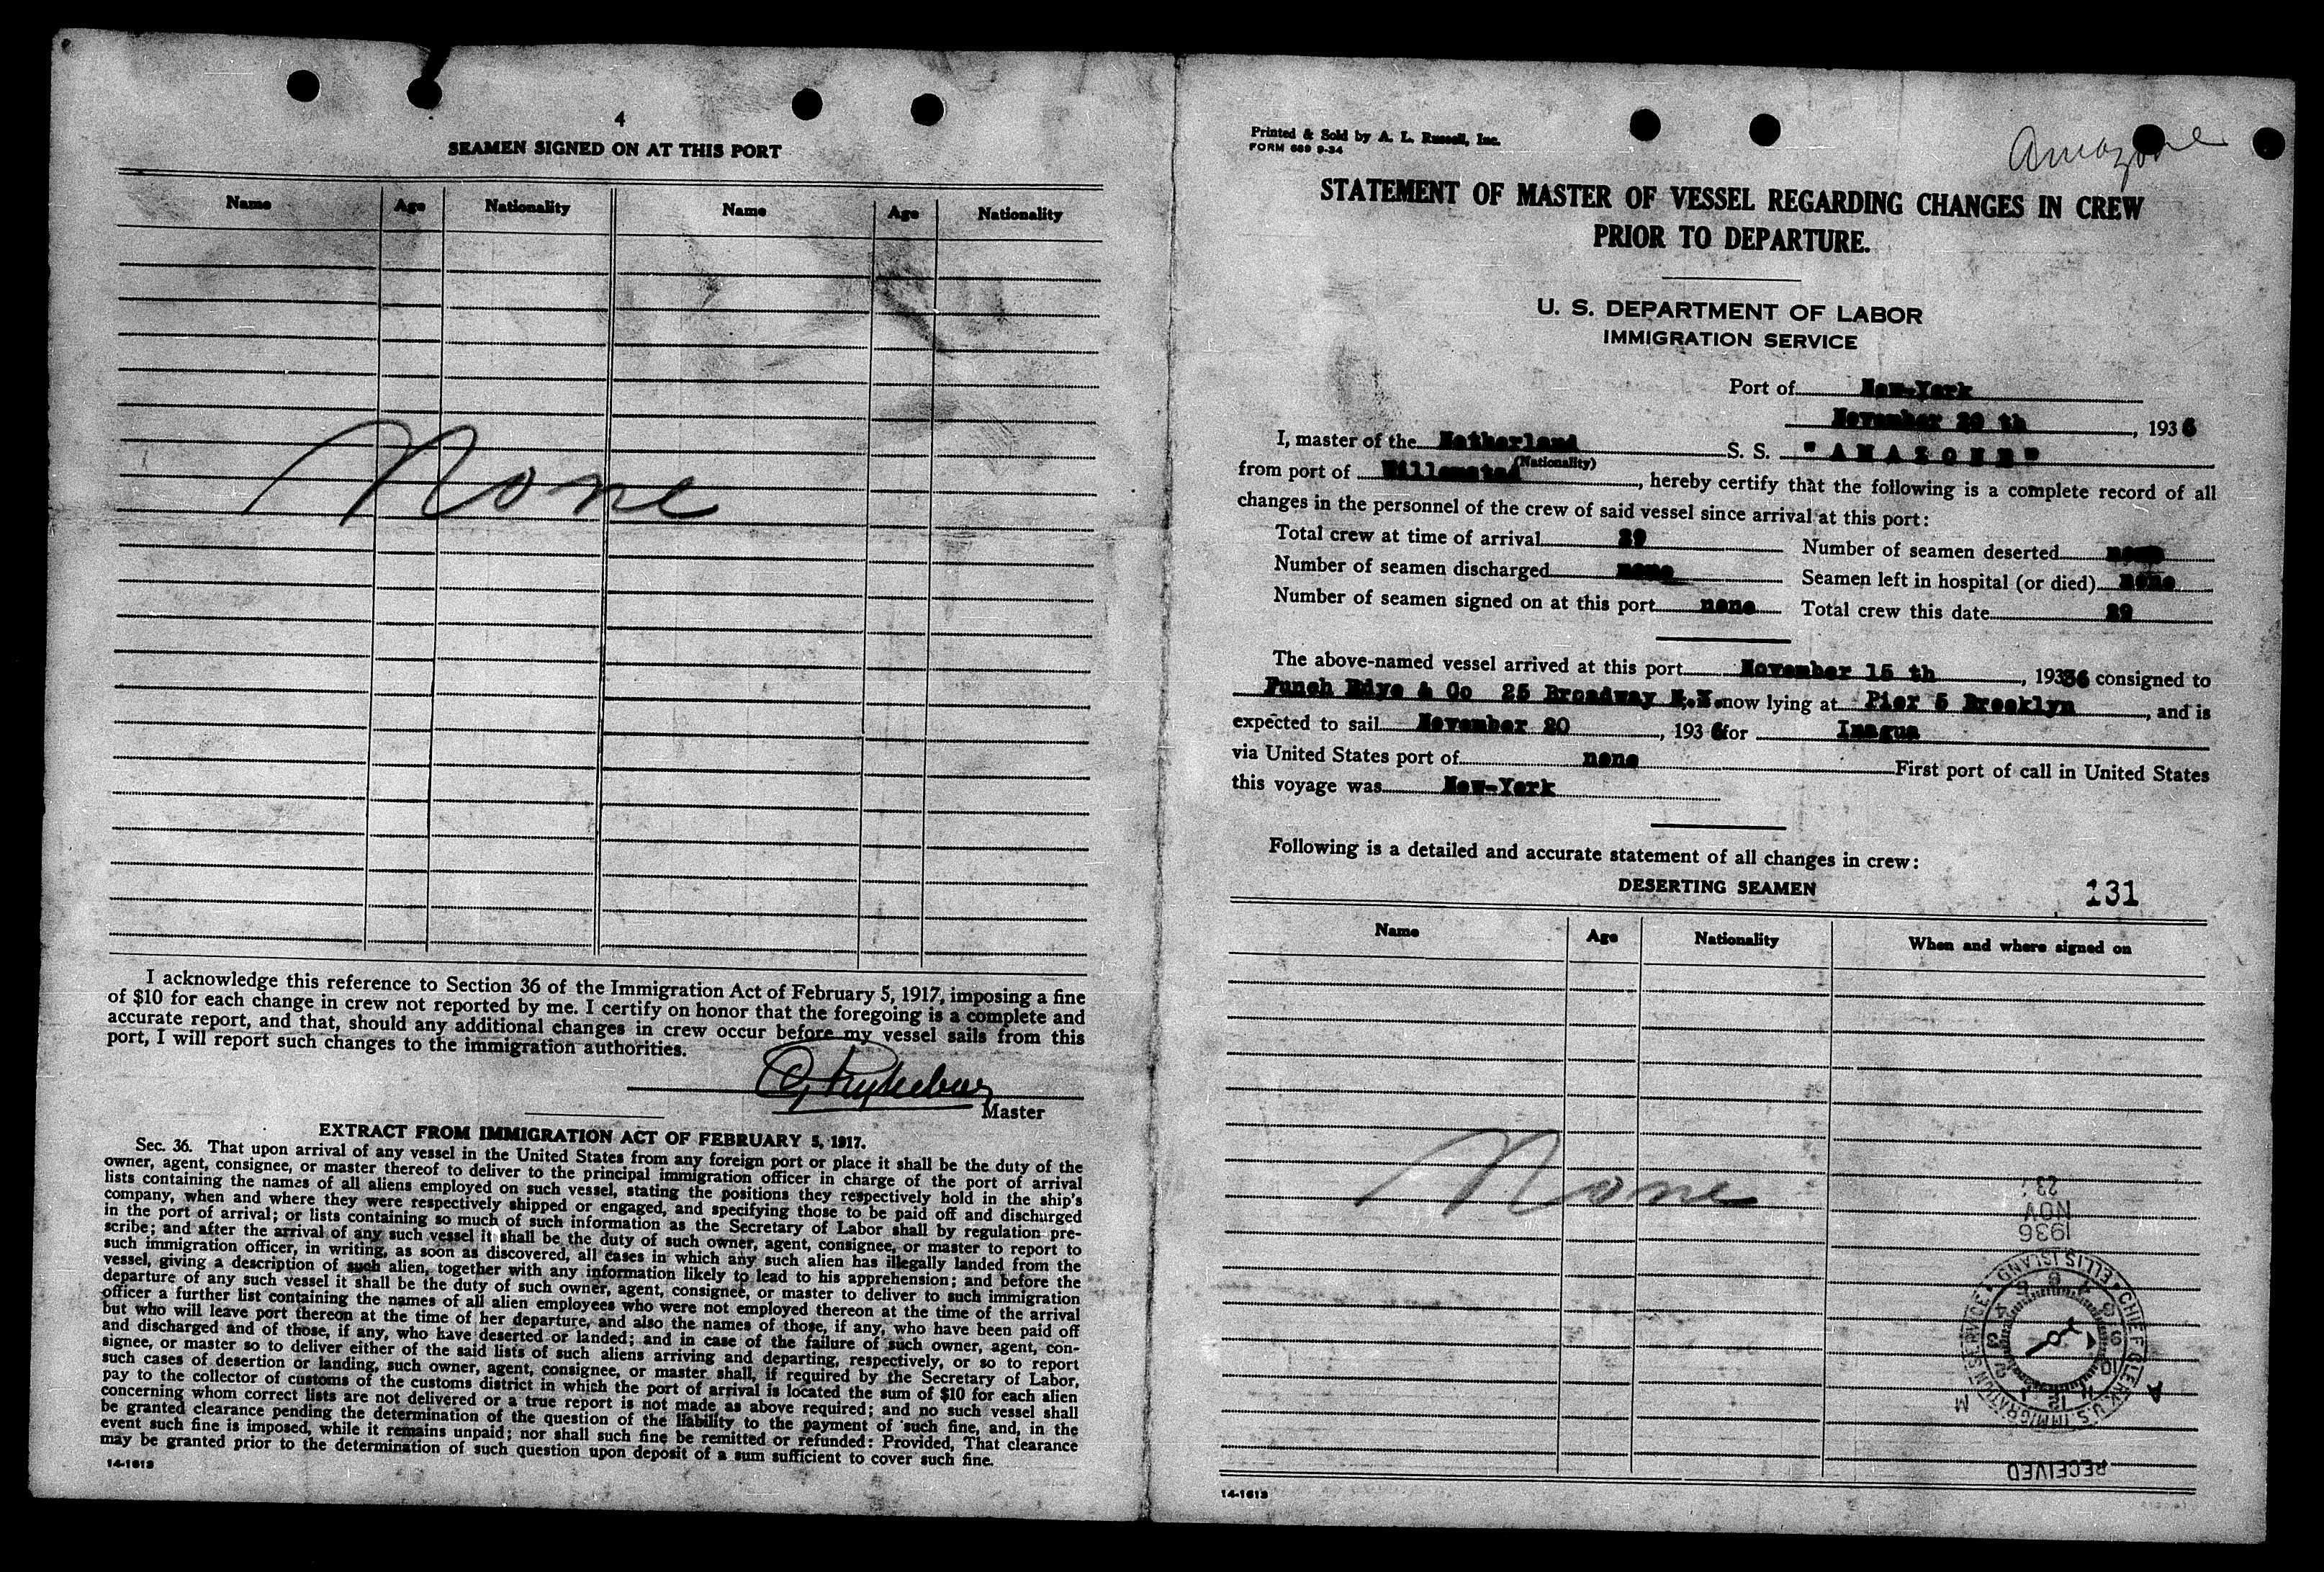 4
SEAMEN SIGNED ON AT THIS PORT
Name Age Nationality Name Age Nationality
None
I acknowledge this reference to Section 36 of the Immigration Act of February 5, 1917, imposing a fine
of $10 for each change in crew not reported by me. I certify on honor that the foregoing is a complete and
accurate report, and that, should any additional changes in crew occur before my vessel sails from this
port, I will report such changes to the immigration authorities.
Master
EXTRACT FROM IMMIGRATION ACT OF FEBRUARY 5, 1917.
Sec. 36. That upon arrival of any vessel in the United States from any foreign port or place it shall be the duty of the
owner, agent, consignee, or master thereof to deliver to the principal immigration officer in charge of the port of arrival
lists containing the names of all aliens employed on such vessel, stating the positions they respectively hold in the ship's
company, when and where they were respectively shipped or engaged, and specifying those to be paid off and discharged
in the port of arrival; or lists containing so much of such information as the Secretary of Labor shall by regulation pre-
scribe; and after the arrival of any such vessel it shall be the duty of such owner, agent, consignee, or master to report to
such immigration officer, in writing, as soon as discovered, all cases in which any such alien has illegally landed from the
vessel, giving a description of such alien, together with any information likely to lead to his apprehension; and before the
departure of any such vessel it shall be the duty of such owner, agent, consignee, or master to deliver to such immigration
officer a further list containing the names of all alien employees who were not employed thereon at the time of the arrival
but who will leave port thereon at the time of her departure, and also the names of those, if any, who have been paid off
and discharged and of those, if any, who have deserted or landed; and in case of the failure of such owner, agent, con-
signee, or master so to deliver either of the said lists of such aliens arriving and departing, respectively, or so to report
such cases of desertion or landing, such owner, agent, consignee, or master shall, if required by the Secretary of Labor,
pay to the collector of customs of the customs district in which the port of arrival is located the sum of $10 for each alien
concerning whom correct lists are not delivered or a true report is not made as above required; and no such vessel shall
be granted clearance pending the determination of the question of the liability to the payment of such fine, and, in the
event such fine is imposed, while it remains unpaid; nor shall such fine be remitted or refunded: Provided, That clearance
may be granted prior to the determination of such question upon deposit of a sum sufficient to cover such fine.
14-1613
Printed & Sold by A. L. Russell, Inc.
FORM 689 9-34
Amazone
STATEMENT OF MASTER OF VESSEL REGARDING CHANGES IN CREW
PRIOR TO DEPARTURE.
U. S. DEPARTMENT OF LABOR
IMMIGRATION SERVICE
Port of New-York
November 20 th, 1936
I, master of the Netherland S. S. "AMAZONE"
(Nationality)
from port of Willemsted, hereby certify that the following is a complete record of all
changes in the personnel of the crew of said vessel since arrival at this port:
Total crew at time of arrival 29 Number of seamen deserted none
Number of seamen discharged none Seamen left in hospital (or died) none
Number of seamen signed on at this port none Total crew this date 29
The above-named vessel arrived at this port November 15 th, 19336 consigned to
Funch Edye & Co 25 Broadway N.Y. now lying at Pier 5 Brooklyn, and is
expected to sail November 20, 1936 for Inagua
via United States port of none First port of call in United States
this voyage was New-York
Following is a detailed and accurate statement of all changes in crew:
DESERTING SEAMEN 131
Name Age Nationality When and where signed on
None
RECEIVED
A M
CHIEF CLERK U.S. IMMIGRATION SERVICE ELLIS ISLAND
1936
NOV
23
14-1613